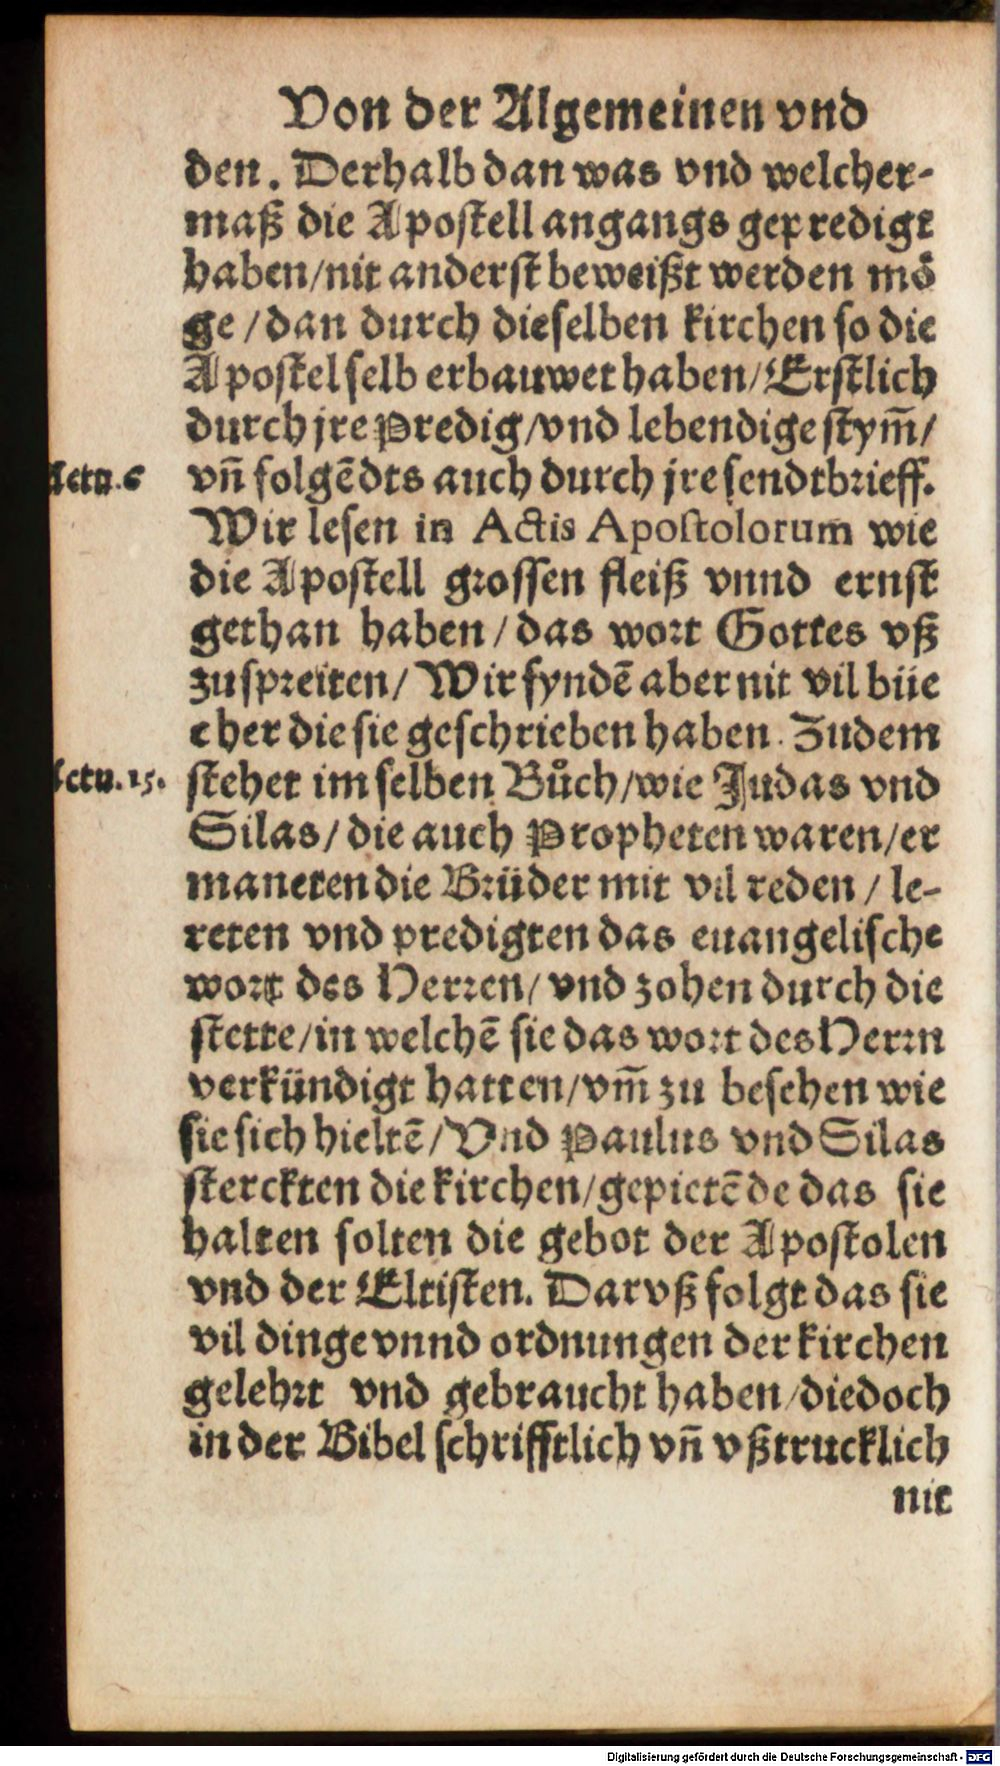 Von der Algemeinen vnd
den. Derhalb dan was vnd welcher-
maß die Apostell angangs gepredigt
haben/nit anderst beweißt werden mö
ge/dan durch dieselben kirchen so die
Apostel selb erbauwet haben/Erstlich
durch jre Predig/vnd lebendige stym̃/
Actu.6 vñ folgẽdts auch durch jre sendtbrieff.
Wir lesen in Actis Apostolorum wie
die Apostell grossen fleiß vnnd ernst
gethan haben/das wort Gottes vß
zuspreiten/Wir fyndẽ aber nit vil büe
cher die sie geschrieben haben. Zudem
Actu.15. stehet im selben Bůch/wie Judas vnd
Silas/die auch Propheten waren/er
maneten die Brüder mit vil reden/le-
reten vnd predigten das euangelische
wort des Herren/vnd zohen durch die
stette/in welchẽ sie das wort des Herrn
verkündigt hatten/vm̃ zu besehen wie
sie sich hieltẽ/Vnd Paulus vnd Silas
sterckten die kirchen/gepietẽde das sie
halten solten die gebot der Apostolen
vnd der Eltisten. Darvß folgt das sie
vil dinge vnnd ordnungen der kirchen
gelehrt vnd gebraucht haben/die doch
in der Bibel schrifftlich vñ vßtrucklich
nit
Digitalisierung gefördert durch die Deutsche Forschungsgemeinschaft - DFG